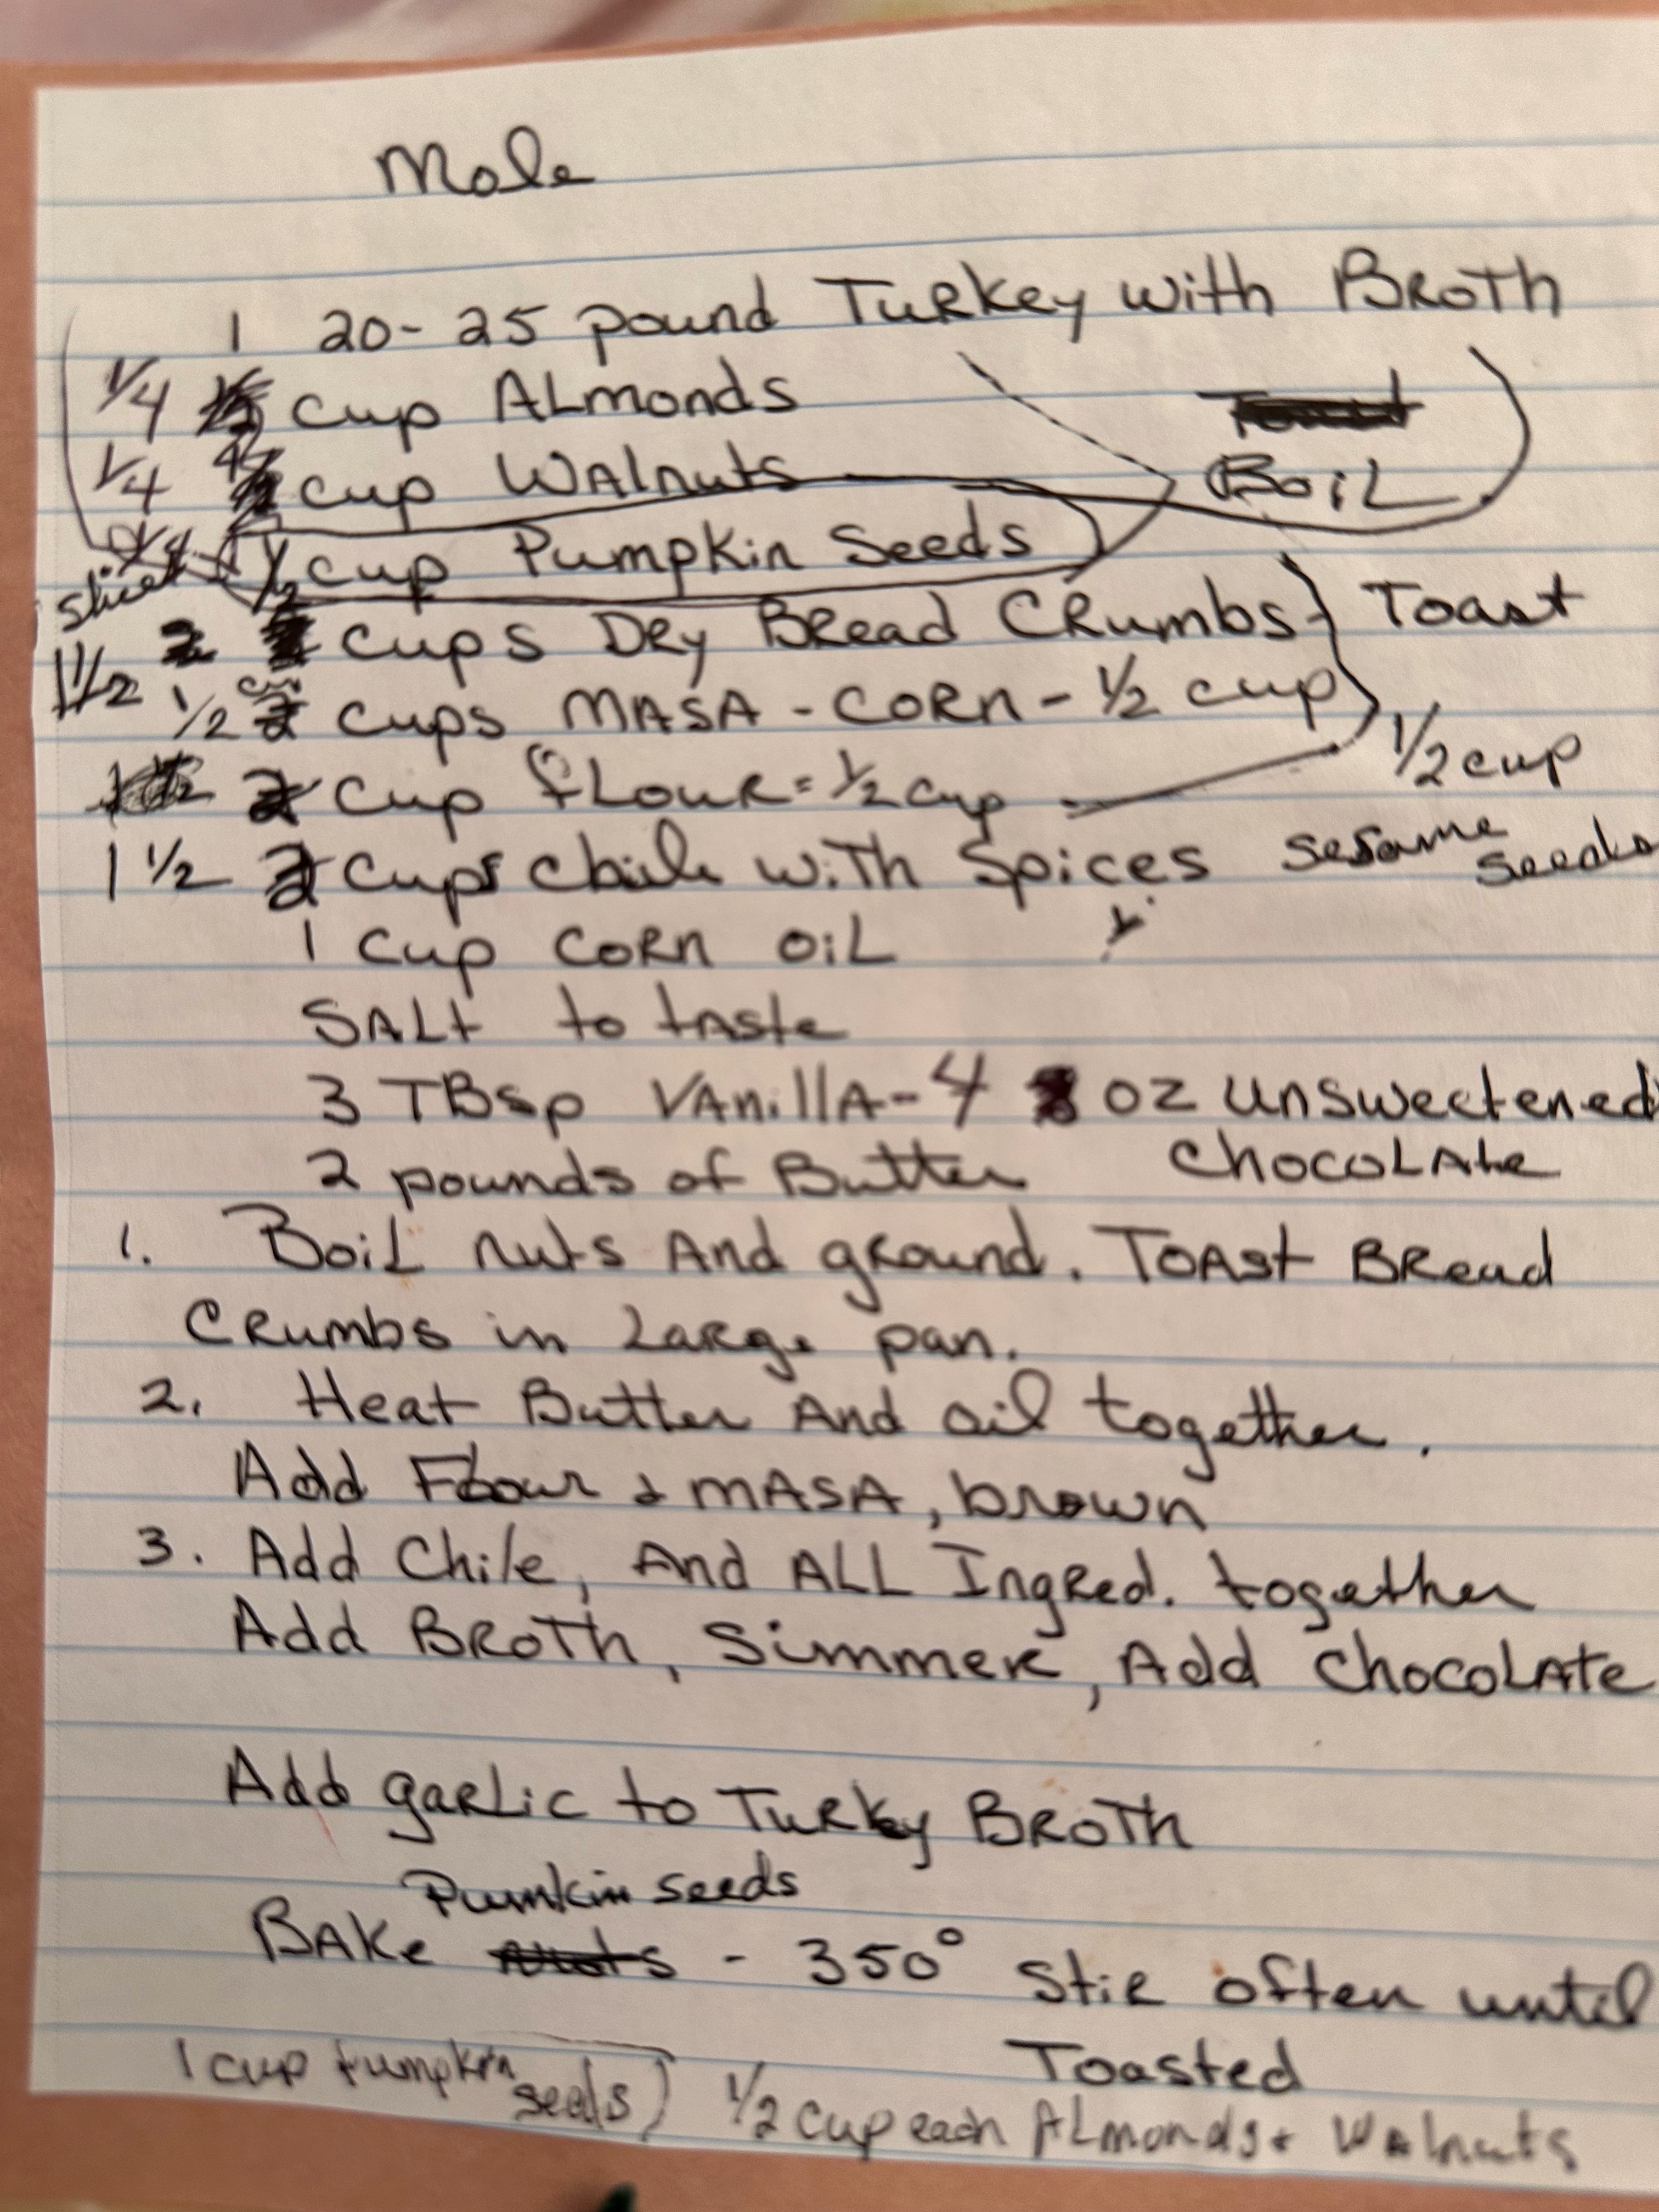 Mole
1 20-25 pound Turkey with Broth
1/4 cup Almonds
Boil
1/4 cup Walnuts
1/2 cup Pumpkin Seeds
2 cups Dry Bread Crumbs Toast
1 1/2
1/2 cups MASA - CORN - 1/2 cup
cup flour = 1/2 cup 1/2 cup
1 1/2 cups chile with Spices sesame seeds
1 cup CORN OIL
SALT to taste
3 TBsp Vanilla - 4 oz Unsweetened
2 pounds of Butter Chocolate
1. Boil nuts And ground. Toast Bread
Crumbs in Large pan.
2. Heat Butter And oil together.
Add Flour & MASA, brown
3. Add Chile, And ALL Ingred. together
Add Broth, Simmer, Add Chocolate
Add garlic to Turkey Broth
Pumkin seeds
Bake - 350° Stir often until
Toasted
1 cup pumpkin seeds) 1/2 cup each Almonds + Walnuts